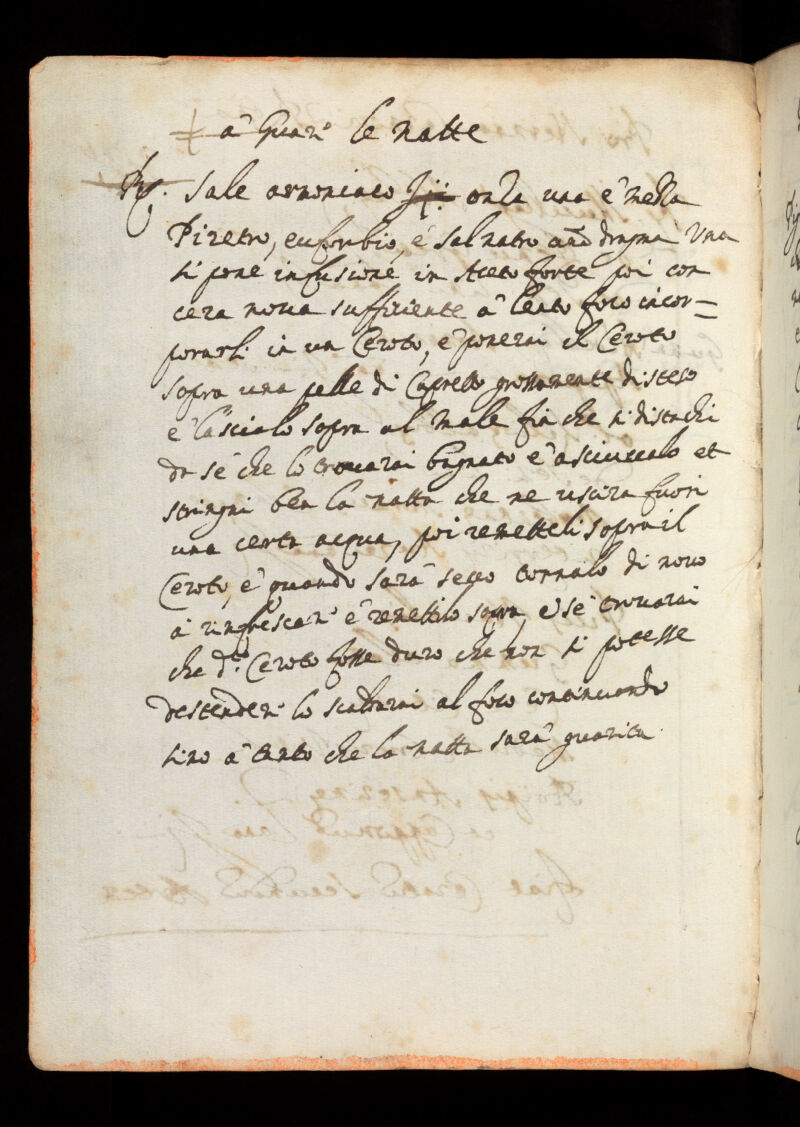 à Guar.e le natte
Rx. Sale armoniaco onza una è mezza
Piretro, euforbio, è Salnatro anã dragma Una
si pone infusione in Aceto forte poi con
cera nova sufficiente à lento foco incor=
porarsi in un Ceroto, è ponerai il Ceroto
sopra una pelle di Capretto grossamente disteso
è lascialo sopra al male fin che si distachi
da sè che lo trovarai bagnato è asciuccalo et
stringni ben la natta che ne uscira fuori
una certa acqua, poi remetteli sopra il
Ceroto, è quando sarà secco tornalo di novo
à rinfrescar.e è remettilo sopra, è se trovarai
che d.to Ceroto fosse duro che non si potesse
destender.e lo scaldarai al foco continuando
sino à tanto che la natta sarà guarita.